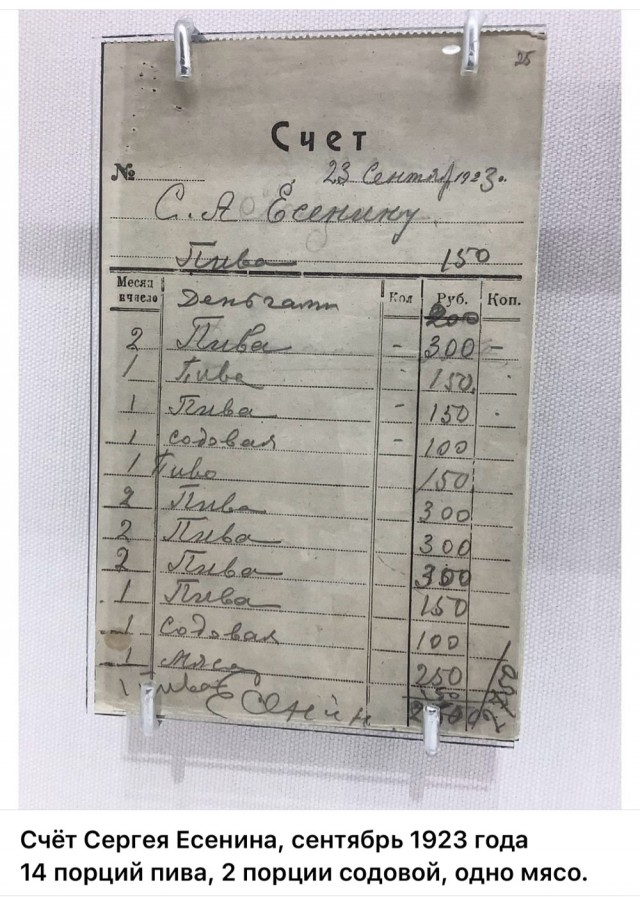 25
Счет
№ 23 Сентяб 1923г.
С. А Есенину
Пива 150
Месяц и число Деньгами Кол Руб. Коп.
200
2 Пива - 300 -
1 Пива - 150
1 Пива - 150
1 содовая - 100
1 Пиво 150
2 Пива 300
2 Пива 300
2 Пива 300
1 Пива 150
1 Содовая 100
1 Мясо 250
1 пиво 150
Есенин
Счёт Сергея Есенина, сентябрь 1923 года
14 порций пива, 2 порции содовой, одно мясо.